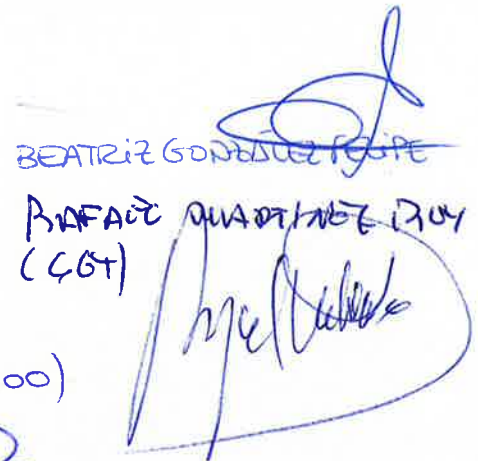 BEATRIZ GONZÁLEZ FELIPE
RAFAEL MARTINEZ RUY
(CGT)
OO)